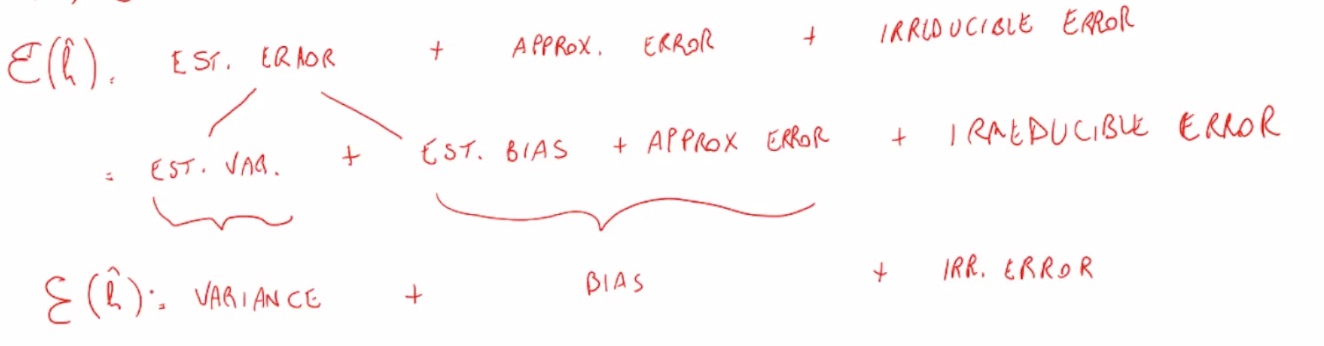 ℰ(ĥ) = EST. ERROR + APPROX. ERROR + IRREDUCIBLE ERROR
= EST. VAR. + EST. BIAS + APPROX ERROR + IRREDUCIBLE ERROR
ℰ(ĥ) = VARIANCE + BIAS + IRR. ERROR